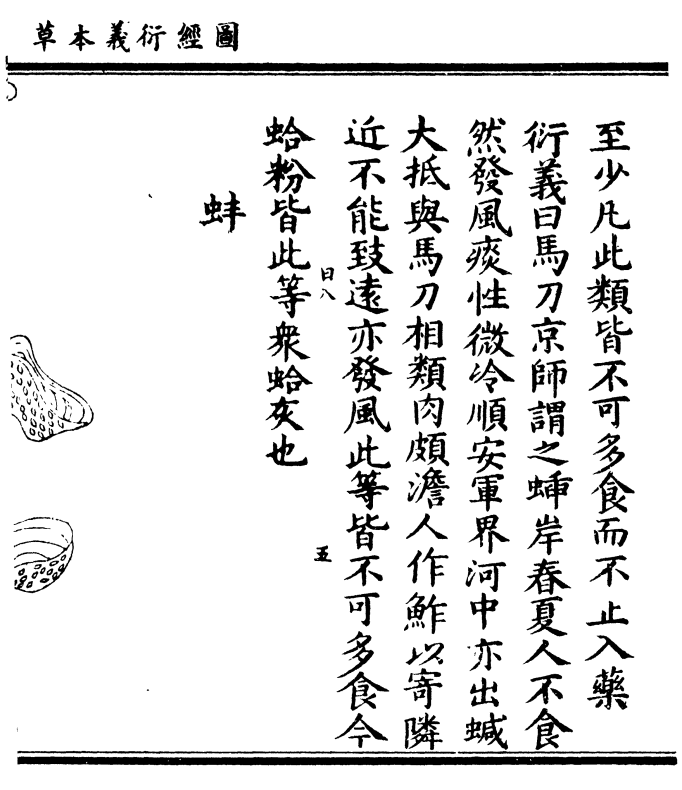 圖經衍義本草
至少凡此類皆不可多食而不止入藥
衍義曰馬刀京師謂之岸春夏人不食
然發風痰性微冷順安軍界河中亦出蝛
大抵與馬刀相類肉頗澹人作鮓以寄隣
近不能致遠亦發風此等皆不可多食今
日八
五
蛤粉皆此等衆蛤灰也
蚌